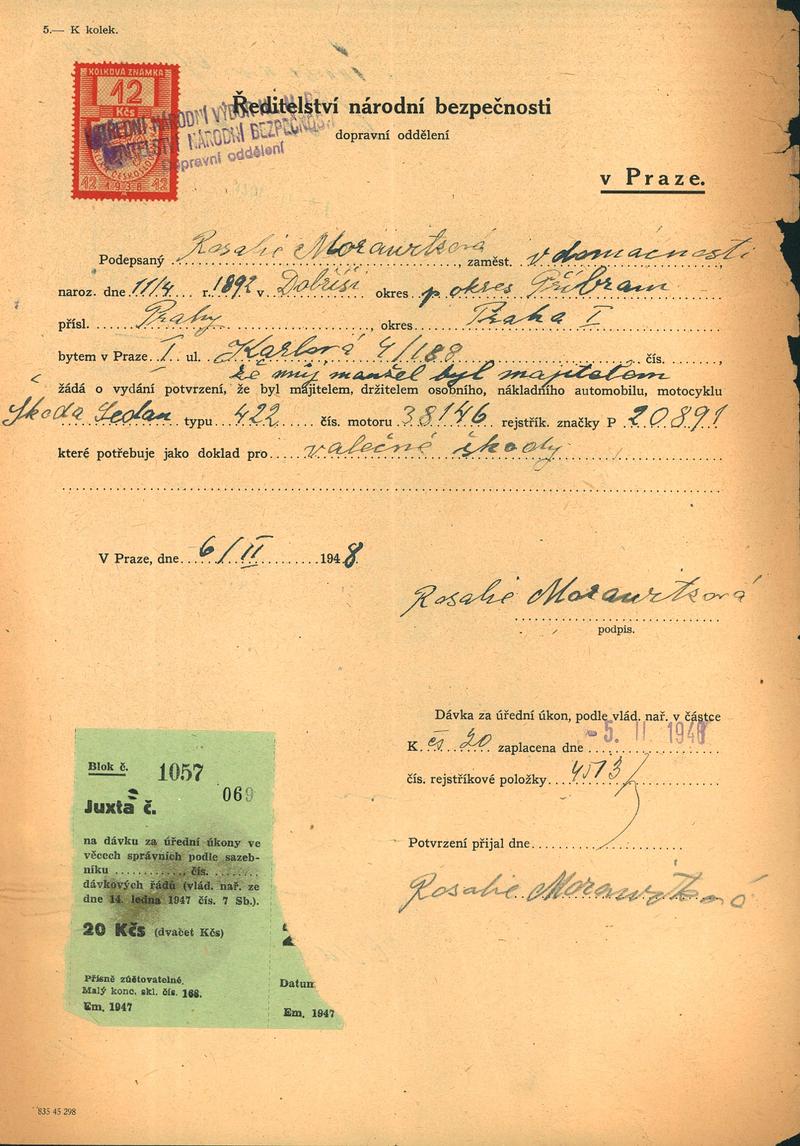 5.— K kolek.
KOLKOVÁ ZNÁMKA
12
Kčs
12 1938 12
ÚSTŘEDNÍ NÁRODNÍ VÝBOR HL. M. PRAHY
ŘEDITELSTVÍ NÁRODNÍ BEZPEČNOSTI
Dopravní oddělení
Ředitelství národní bezpečnosti
dopravní oddělení
v Praze.
Podepsaný Rosalie Morawitzová, zaměst. v domácnosti
naroz. dne 11/4. r. 1892 v Dobříši okres p. okres Příbram
přísl. Prahy, okres Praha I
bytem v Praze I ul. Karlová 4/188 čís. ,
že můj manžel byl majitelem
žádá o vydání potvrzení, že byl majitelem, držitelem osobního, nákladního automobilu, motocyklu
Škoda Sedan typu 422 čís. motoru 38146 rejstřík. značky P 20891
které potřebuje jako doklad pro válečné škody
V Praze, dne 6/II 1948
Rosalie Morawitzová
podpis.
Dávka za úřední úkon, podle vlád. nař. v částce
K čs 20 zaplacena dne -5. II 1948
čís. rejstříkové položky 4513/
Potvrzení přijal dne
Rosalie Morawitzová
Blok č. 1057
069
Juxta č.
na dávku za úřední úkony ve
věcech správních podle sazeb-
níku , čís.
dávkových řádů (vlád. nař. ze
dne 14. ledna 1947 čís. 7 Sb.).
20 Kčs (dvacet Kčs)
2
Přísně zúčtovatelné.
Malý konc. skl. čís. 168.
Em. 1947
Datum
Em. 1947
835 45 298